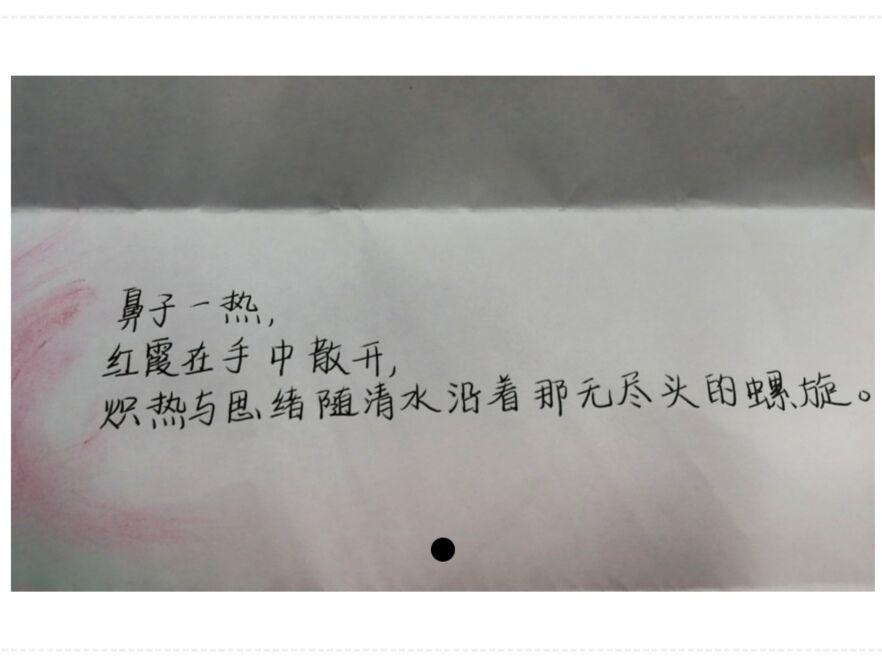 鼻子一热,
红霞在手中散开,
炽热与思绪随清水沿着那无尽头的螺旋。